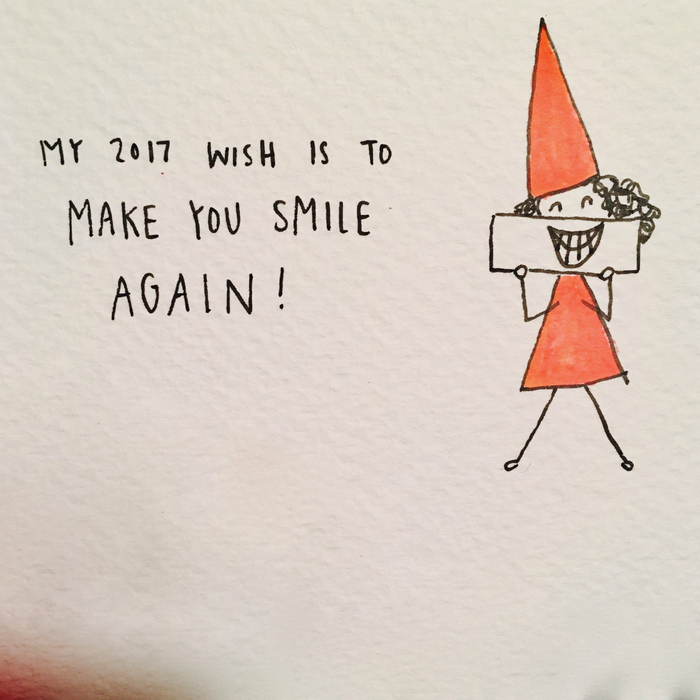 MY 2017 WISH IS TO
MAKE YOU SMILE
AGAIN!